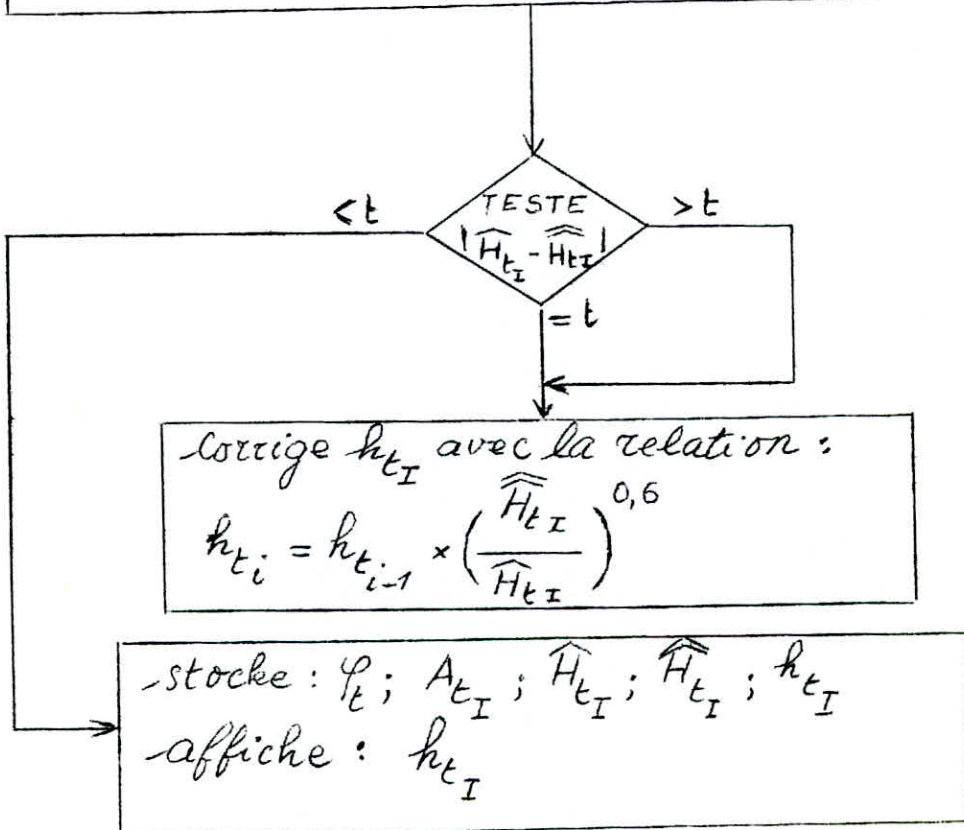 < t
TESTE
> t
|Ĥ_{t_I} - Ĥ̂_{tI}|
= t
-corrige h_{t_I} avec la relation :
h_{t_i} = h_{t_{i-1}} × (Ĥ̂_{t_I} / Ĥ_{t_I})^{0,6}
-stocke : φ_t ; A_{t_I} ; Ĥ_{t_I} ; Ĥ̂_{t_I} ; h_{t_I}
-affiche : h_{t_I}